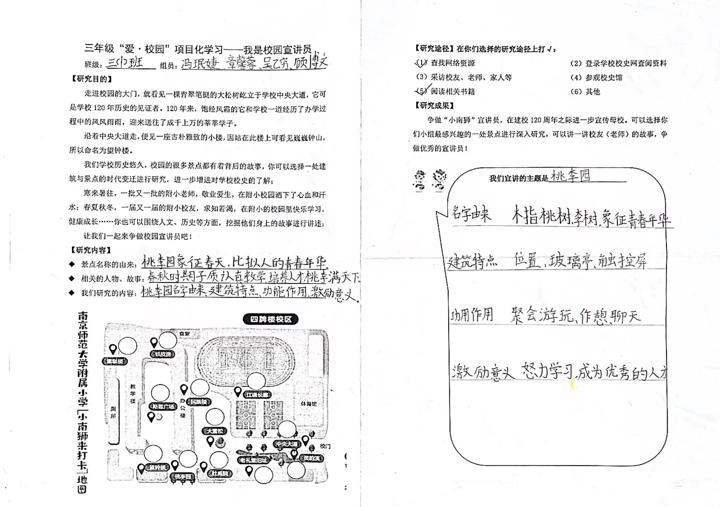 三年级“爱·校园”项目化学习——我是校园宣讲员
班级：三(3)班 组员：冯珉婕
【研究目的】
走进校园的大门，就看见一棵青翠笔挺的大松树屹立于学校中央大道，它可
是学校 120 年历史的见证者。120 年来，饱经风霜的它和学校一道经历了办学过
程中的风风雨雨，迎来送往了成千上万的莘莘学子。
沿着中央大道走，便见一座古朴雅致的小楼，因站在此楼上可看见巍巍钟山，
所以命名为望钟楼。
我们学校历史悠久，校园的很多景点都有着背后的故事，你可以选择一处建
筑与景点的时代变迁进行研究，进一步增进对学校校史的了解；
寒来暑往，一批又一批的附小老师，敬业爱生，在附小校园洒下了心血和汗
水；春夏秋冬，一届又一届的附小校友，求知若渴，在附小的校园里快乐学习，
健康成长……你也可以围绕人文、历史等方面，挖掘他们身上的故事进行讲述；
让我们一起来争做校园宣讲员吧！
【研究内容】
◆ 景点名称的由来：桃李园象征春天，比拟人的青春年华
◆ 相关的人物、故事：春秋时期子质认真教学，培养人才，桃李满天下
◆ 我们研究的内容：桃李园名字由来、建筑特点、功能作用、激励意义。
四牌楼校区
南京师范大学附属小学“小南狮来打卡”地图
食堂
教学楼
办公楼
厕所
体育馆
校门
【研究途径】在你们选择的研究途径上打√：
(1) 查找网络资源
(2) 登录学校校史网查阅资料
(3) 采访校友、老师、家人等
(4) 参观校史馆
(5) 阅读相关书籍
(6) 其他
【研究成果】
争做“小南狮”宣讲员，在建校 120 周年之际进一步宣传母校。可以选择你
们小组最感兴趣的一处景点进行深入研究，可以讲一讲校友（老师）的故事，争
做优秀的宣讲员！
我们宣讲的主题是 桃李园
名字由来 木指桃树，李树，象征青春年华
建筑特点 位置、玻璃亭、触控屏
功用作用 聚会游玩、作憩、聊天
激励意义 努力学习，成为优秀的人才